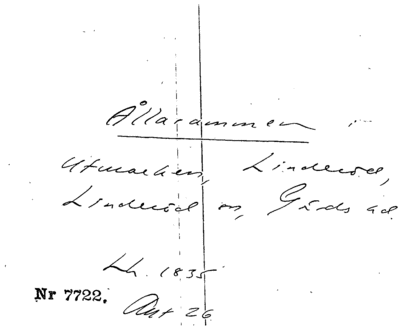 Ållarammen i
Utmarken, Linderöd,
Linderöd sn, Gärds hd.
Lh. 1835
Nr 7722.
Akt 26